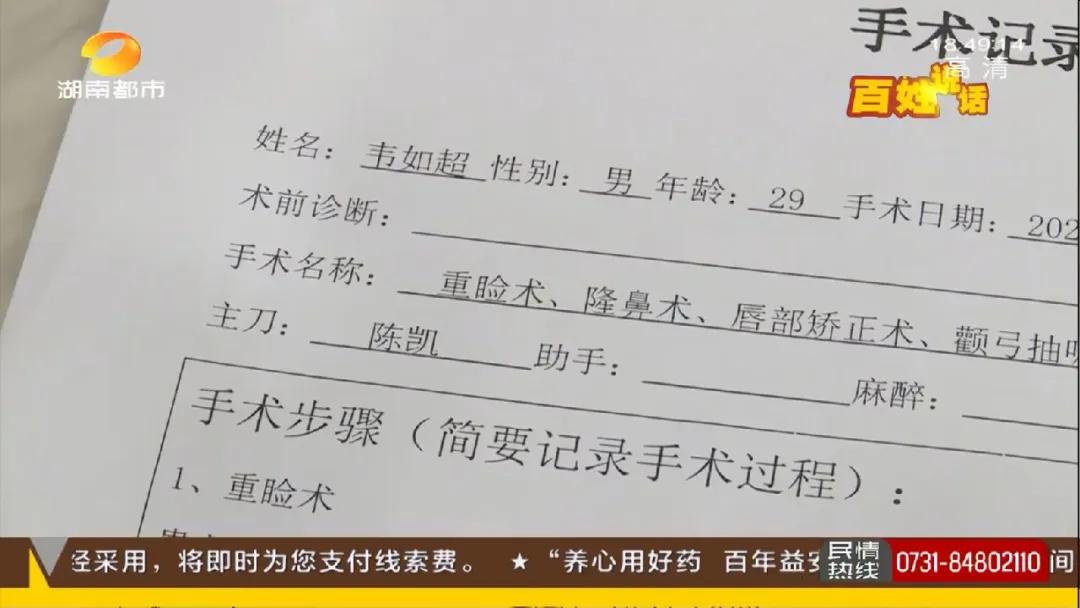 湖南都市
手术记录
18:49:14
高清
百姓说话
姓名：韦如超 性别：男 年龄：29 手术日期：202
术前诊断：
手术名称：重睑术、隆鼻术、唇部矫正术、颧弓抽吸
主刀：陈凯 助手： 麻醉：
手术步骤（简要记录手术过程）：
1、重睑术
经采用，将即时为您支付线索费。 ★ “养心用好药 百年益安
民情热线 0731-84802110 间